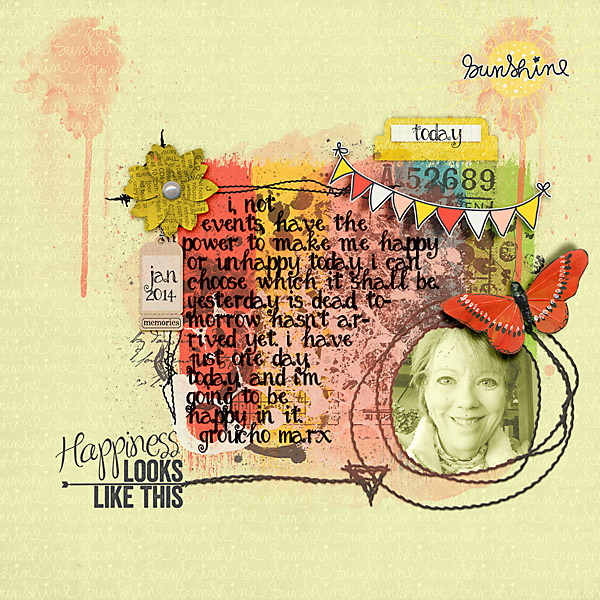 sunshine
today
A 52689
i, not
events, have the
power to make me happy
or unhappy today. i can
choose which it shall be.
yesterday is dead to-
morrow hasn't ar-
rived yet. i have
just one day
today and i'm
going to be
happy in it.
groucho marx
jan
2014
memories
Happiness
LOOKS
LIKE THIS